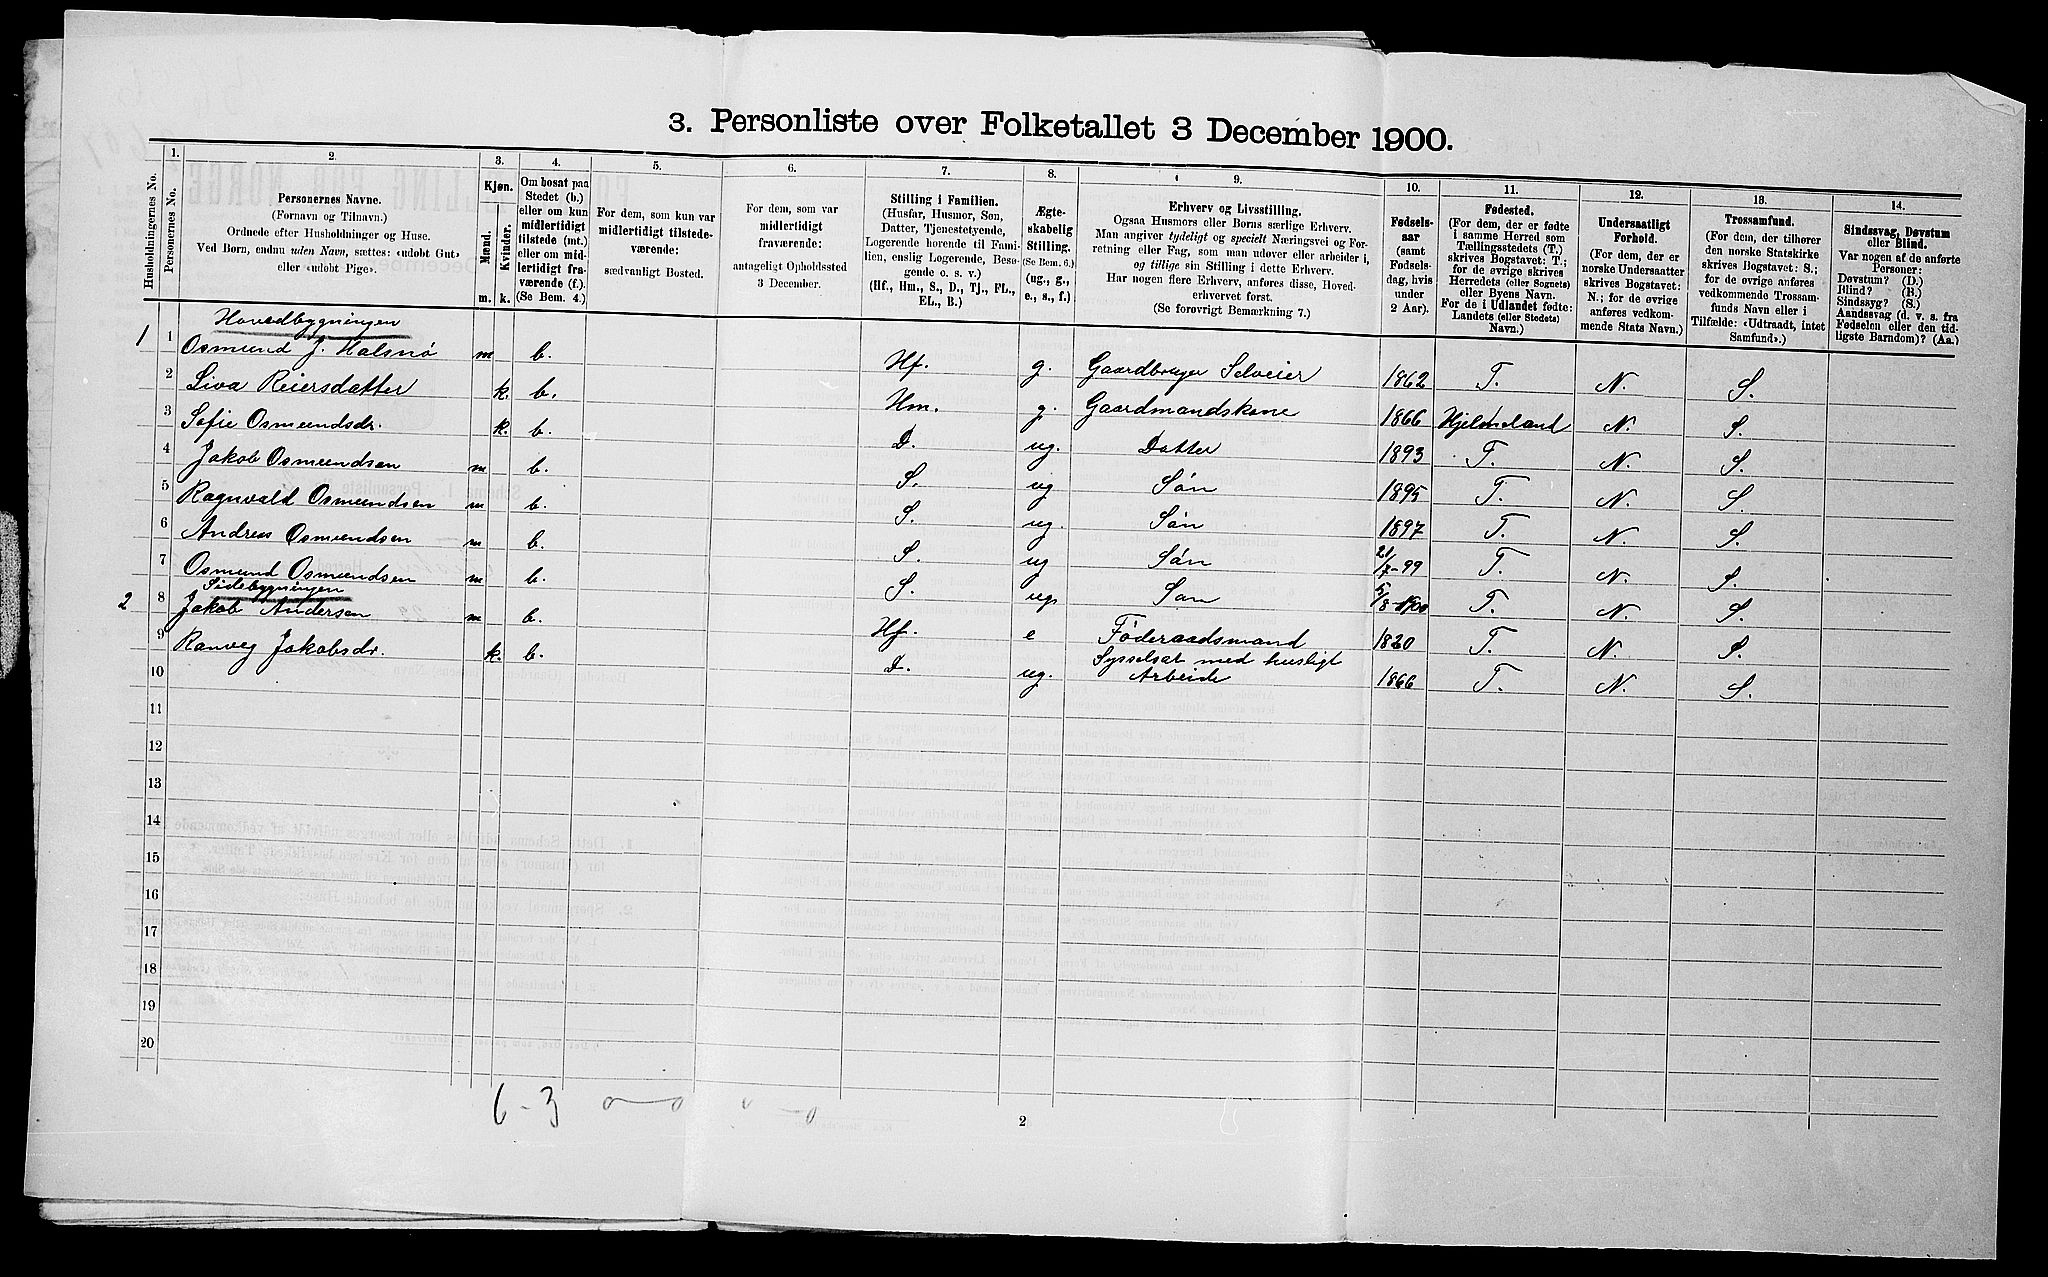 3. Personliste over Folketallet 3 December 1900.
Husholdningernes No.
1.
Personernes No.
2.
Personernes Navne.
(Fornavn og Tilnavn.)
Ordnede efter Husholdninger og Huse.
Ved Børn, endnu uden Navn, sættes: «udøbt Gut»
eller «udøbt Pige».
3.
Kjøn.
Mænd.
Kvinder.
m. k.
4.
Om bosat paa
Stedet (b.)
eller om kun
midlertidigt
tilstede (mt.)
eller om mid-
lertidigt fra-
værende (f.).
(Se Bem. 4.)
5.
For dem, som kun var
midlertidigt tilstede-
værende:
sædvanligt Bosted.
6.
For dem, som var
midlertidigt
fraværende:
antageligt Opholdssted
3 December.
7.
Stilling i Familien.
(Husfar, Husmor, Søn,
Datter, Tjenestetyende,
Logerende hørende til Fami-
lien, enslig Logerende, Besø-
gende o. s. v.)
(Hf., Hm., S., D., Tj., FL.,
EL., B.)
8.
Ægte-
skabelig
Stilling.
(Se Bem. 6.)
(ug., g.,
e., s., f.)
9.
Erhverv og Livsstilling.
Ogsaa Husmors eller Børns særlige Erhverv.
Man angiver tydeligt og specielt Næringsvei og For-
retning eller Fag, som man udøver eller arbeider i,
og tillige sin Stilling i dette Erhverv.
Har nogen flere Erhverv, anføres disse, Hoved-
erhvervet først.
(Se forøvrigt Bemærkning 7.)
10.
Fødsels-
aar
(samt
Fødsels-
dag, hvis
under
2 Aar).
11.
Fødested.
(For dem, der er fødte
i samme Herred som
Tællingsstedets (T.)
skrives Bogstavet: T.;
for de øvrige skrives
Herredets (eller Sognets)
eller Byens Navn.
For de i Udlandet fødte:
Landets (eller Stedets)
Navn.)
12.
Undersaatligt
Forhold.
(For dem, der er
norske Undersaatter
skrives Bogstavet:
N.; for de øvrige
anføres vedkom-
mende Stats Navn.)
13.
Trossamfund.
(For dem, der tilhører
den norske Statskirke
skrives Bogstavet: S.;
for de øvrige anføres
vedkommende Trossam-
funds Navn eller i
Tilfælde: «Udtraadt, intet
Samfund».)
14.
Sindssvag, Døvstum
eller Blind.
Var nogen af de anførte
Personer:
Døvstum? (D.)
Blind? (B.)
Sindssyg? (S.)
Aandssvag (d. v. s. fra
Fødselen eller den tid-
ligste Barndom)? (Aa.)
Hovedbygningen
1 1 Osmund J. Halsnø m b. Hf. g. Gaardbruger Selveier 1862 T. N. S.
2 Siva Reiersdatter k. b. Hm. g. Gaardmandskone 1866 Hjelmeland N. S.
3 Sofie Osmundsdr. k. b. D. ug. Datter 1893 T. N. S.
4 Jakob Osmundsen m b. S. ug Søn 1895 T. N. S.
5 Ragnvald Osmundsen m b. S. ug. Søn 1897 T. N. S.
6 Andreas Osmundsen m b. S. ug Søn 21/7-99 T. N. S.
7 Osmund Osmundsen m b. S. ug. Søn 5/8-1900 T. N. S.
Sidebygningen
2 8 Jakob Andersen m b. Hf. e Føderaadsmand 1820 T. N. S.
9 Ranveg Jakobsdr. k. b. D. ug. Sysselsat med husligt
Arbeide 1866 T. N. S.
10
11
12
13
14
15
16
17
18
19
20
6-3 0 0 0 - 0
2